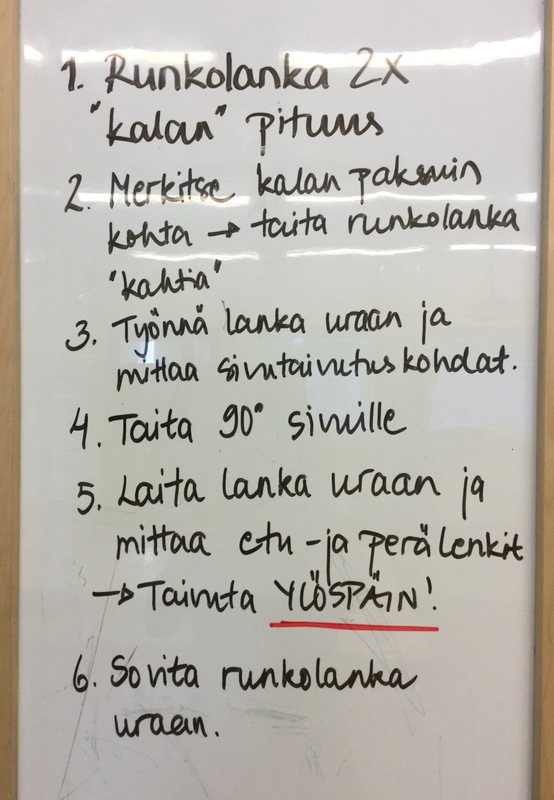 1. Runkolanka 2x
"kalan" pituus
2. Merkitse kalan paksuin
kohta → taita runkolanka
"kahtia"
3. Työnnä lanka uraan ja
mittaa sivutaivutuskohdat.
4. Taita 90° sivuille
5. Laita lanka uraan ja
mittaa etu-ja perälenkit
→ Taivuta YLÖSPÄIN!
6. Sovita runkolanka
uraan.